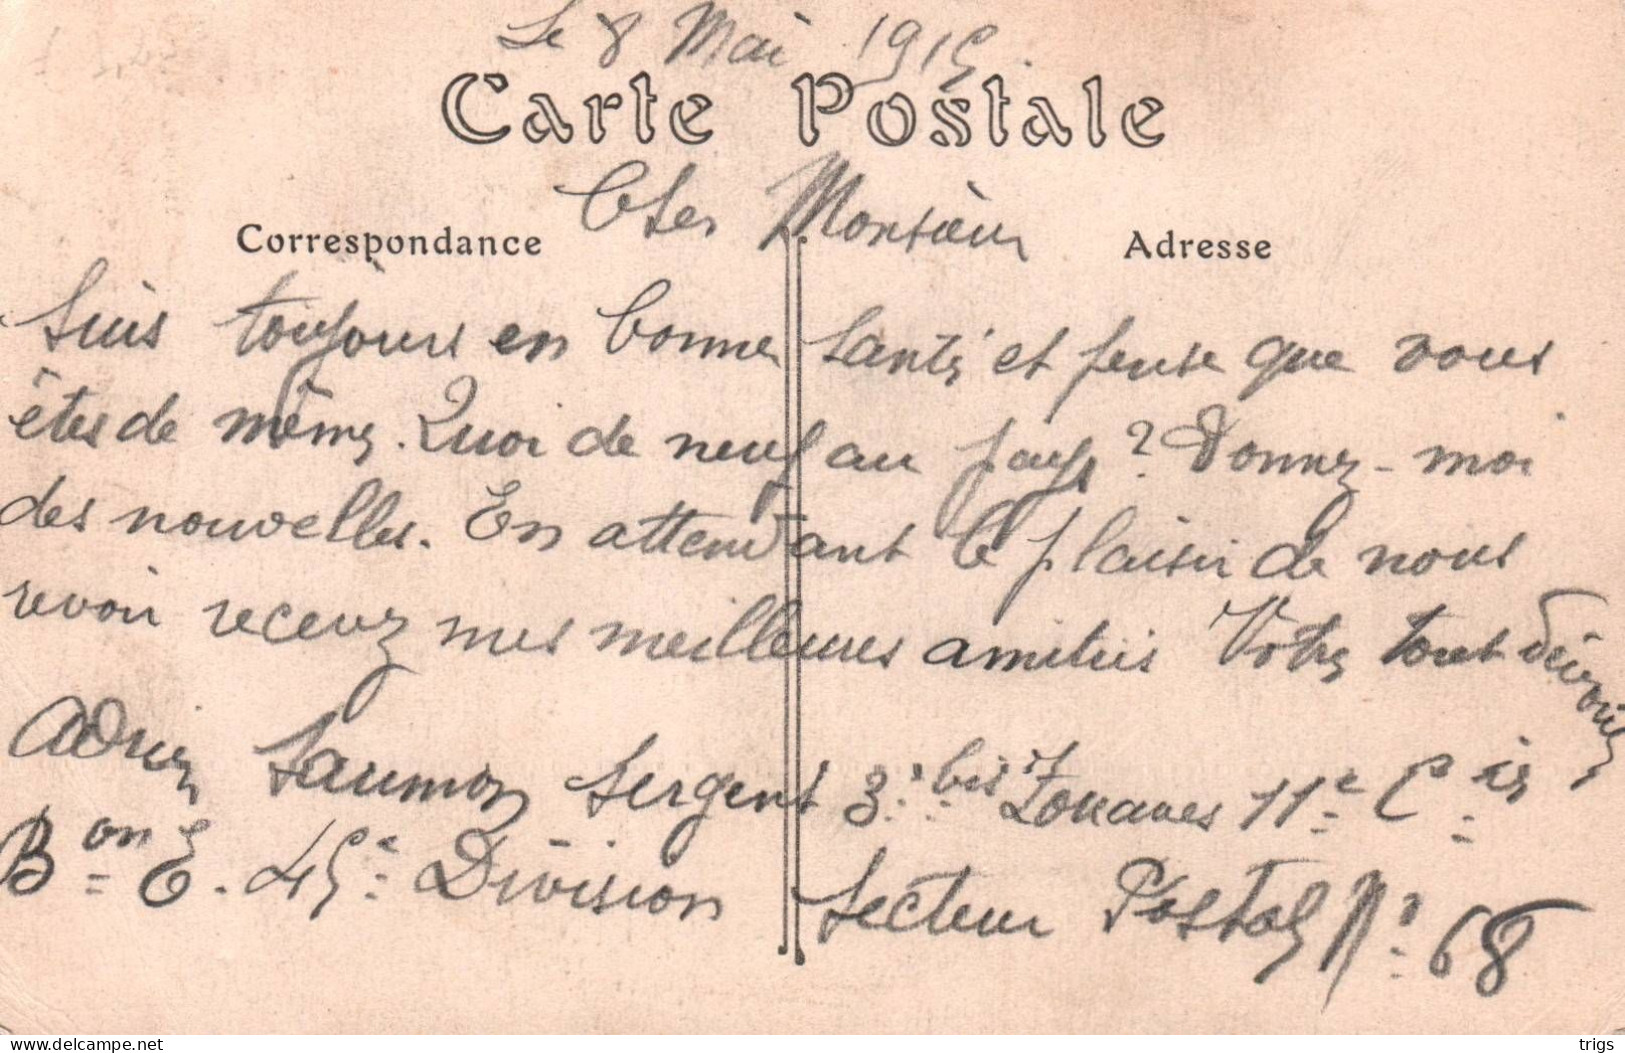 Le 8 Mai 1915.
Carte Postale
Cher Monsieur
Correspondance
Adresse
Suis toujours en bonne santé et pense que vous
êtes de même. Quoi de neuf au pays? Donnez-moi
des nouvelles. En attendant le plaisir de nous
revoir recevez mes meilleures amitiés Votre tout dévoué
Adrien Saumon Sergent 3e bis Zouaves 11e Cie
Bon E. 45e Division Secteur Postal No 68
delcampe.net
trigs